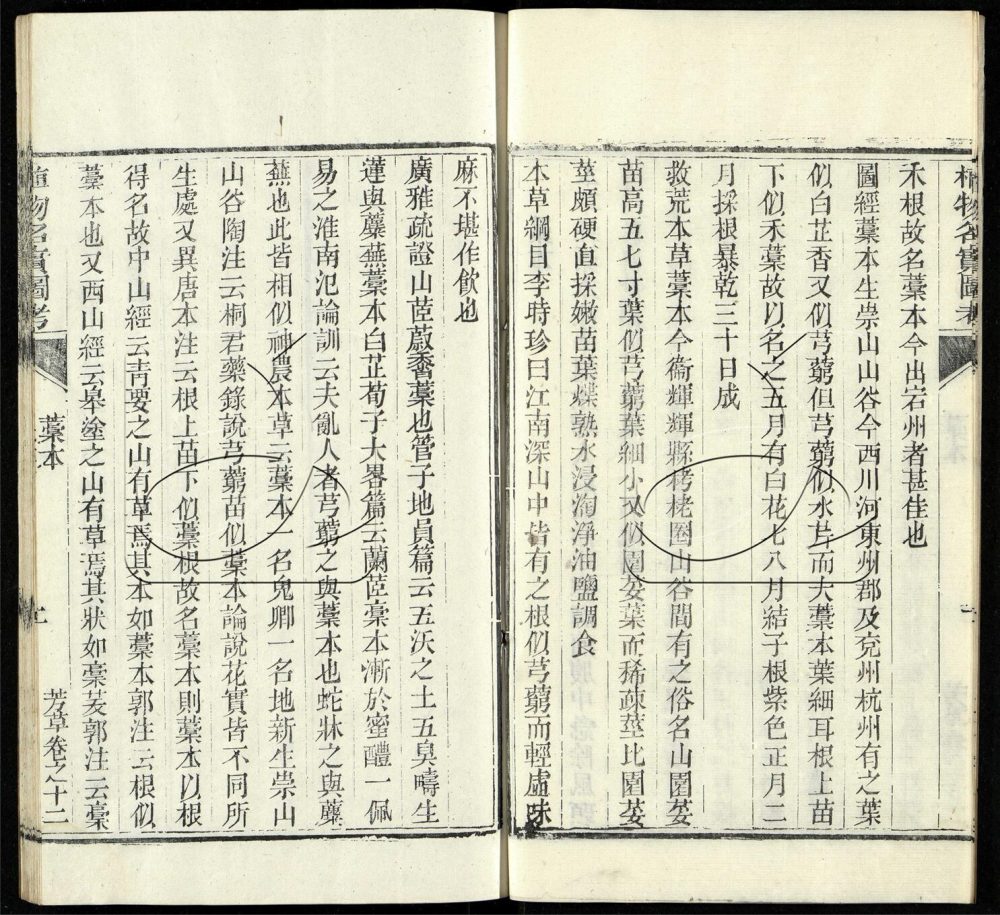 植物名實圖考
禾根故名藁本今出宕州者甚佳也
圖經藁本生崇山山谷今西川河東州郡及兗州杭州有之葉
似白芷香又似芎藭但芎藭似水芹而大藁本葉細耳根上苗
下似禾藁故以名之五月有白花七八月結子根紫色正月二
月採根暴乾三十日成
救荒本草藁本今衞輝輝縣栲栳圈山谷間有之俗名山園荽
苗高五七寸葉似芎藭葉細小又似園荽葉而稀疎莖比園荽
莖頗硬直採嫩苗葉煠熟水浸淘淨油鹽調食
本草綱目李時珍曰江南深山中皆有之根似芎藭而輕虛味
麻不堪作飲也
廣雅疏證山茝蔚香藁也管子地員篇云五沃之土五臭疇生
蓮與蘪蕪藁本白芷荀子大畧篇云蘭茝稾本漸於蜜醴一佩
易之淮南氾論訓云夫亂人者芎藭之與藁本也蛇牀之與蘪
蕪也此皆相似神農本草云藁本一名鬼卿一名地新生崇山
山谷陶注云桐君藥錄說芎藭苗似藁本論說花實皆不同所
生處又異唐本注云根上苗下似藁根故名藁本則藁本以根
得名故中山經云靑要之山有草焉其本如藁本郭注云根似
藁本也又西山經云皋塗之山有草焉其狀如稾茇郭注云稾
植物名實圖考
藁本
芳草卷之十二